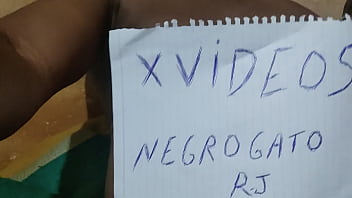 XVIDEOS
NEGROGATO
RJ